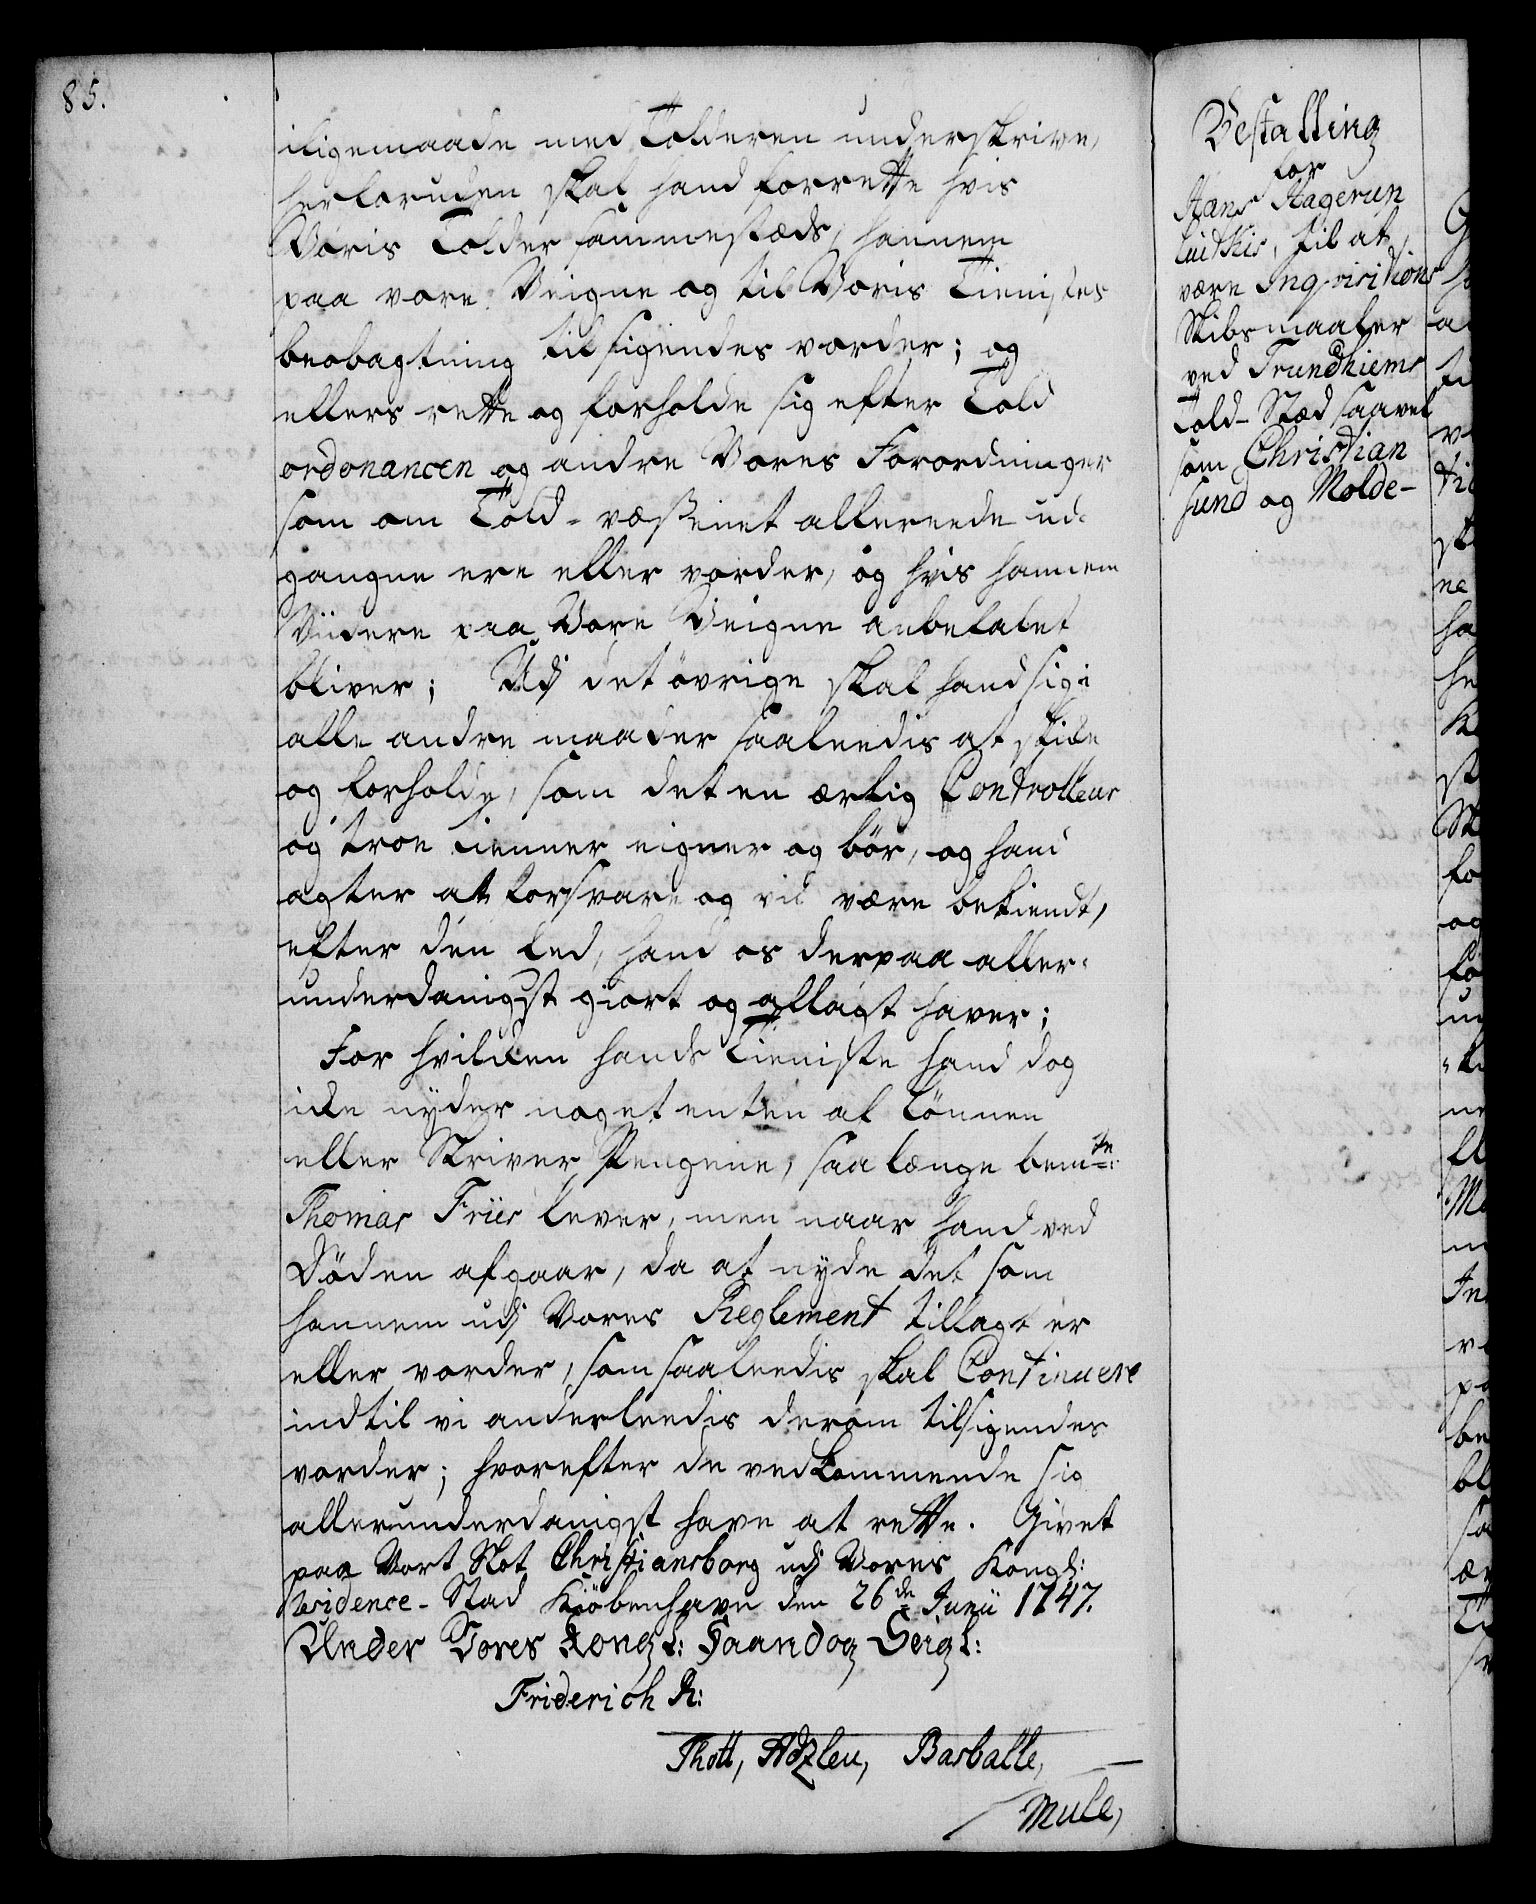 85.
iligemaade med Tolderen underskrive,
herforuden skal hand forrette hvis
Voris Tolder sammestæds, hannem
paa vore Veigne og til Voris Tienistes
beobagtning tilsigendes vorder; og
ellers rette og forholde sig efter Told
ordonancen og andre Vores Forordninger
som om Told-væßenet allereede ud-
gangne ere eller vorder, og hvis hannem
Viidere paa Vore Veigne anbefalet
bliver; Udj det övrige skal hand sig i
alle andre maader saaleedis at skicke
og forholde, som det en ærlig Controlleur
og troe Tienner eigner og bör, og hand
agter at forsvare og vil være bekiendt,
efter den Eed, hand os derpaa aller-
underdanigst giort og aflagt haver;
For hvilcken hands Tieniste hand dog
icke nyder noget enten af Lönnen
eller Skriver Pengene, saa længe bemte:
Thomas Friis lever, men naar hand ved
Döden afgaar, da at nyde det som
hannem udj Vores Reglement tillagt er
eller vorder, som saaleedis skal Continuere
indtil vi anderleedis derom tilsigendes
vorder; hvorefter de vedkommende sig
allerunderdanigst have at rette. Givet
paa Vort Slot Christiansborg udj Vores Kongl:
Residence-Stad Kiöbenhavn den 26de Junii 1747.
Under Vores Kongl: Haand og Seigl:
Friderich R:
Thott, Adzleu, Barballe,
Mule,
Bestalling
for
Hans Hagerup
Lütkis, til at
være Inqvisitions
Skibsmaaler
ved Trundhiems
Told-Stæd saavel
som Christian
sund og Molde-